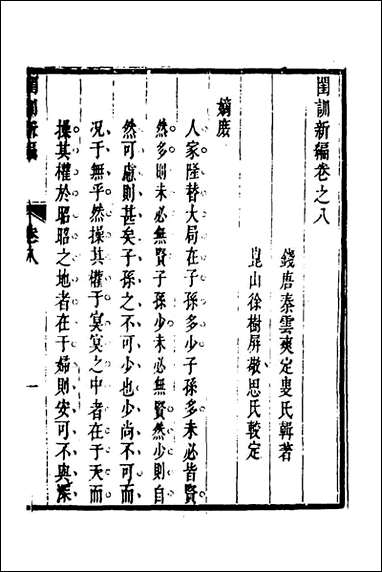 閨訓新編卷之八
錢唐秦雲爽定叟氏輯著
崑山徐樹屏敬思氏較定
嫡庶
人家隆替大局在子孫多少子孫多未必皆賢
然多則未必無賢子孫少未必無賢然少則自
然可慮則甚矣子孫之不可少也少尚不可而
況于無乎然操其權于冥冥之中者在于天而
操其權於昭昭之地者在于婦則安可不與深
閨訓新編
卷八
一